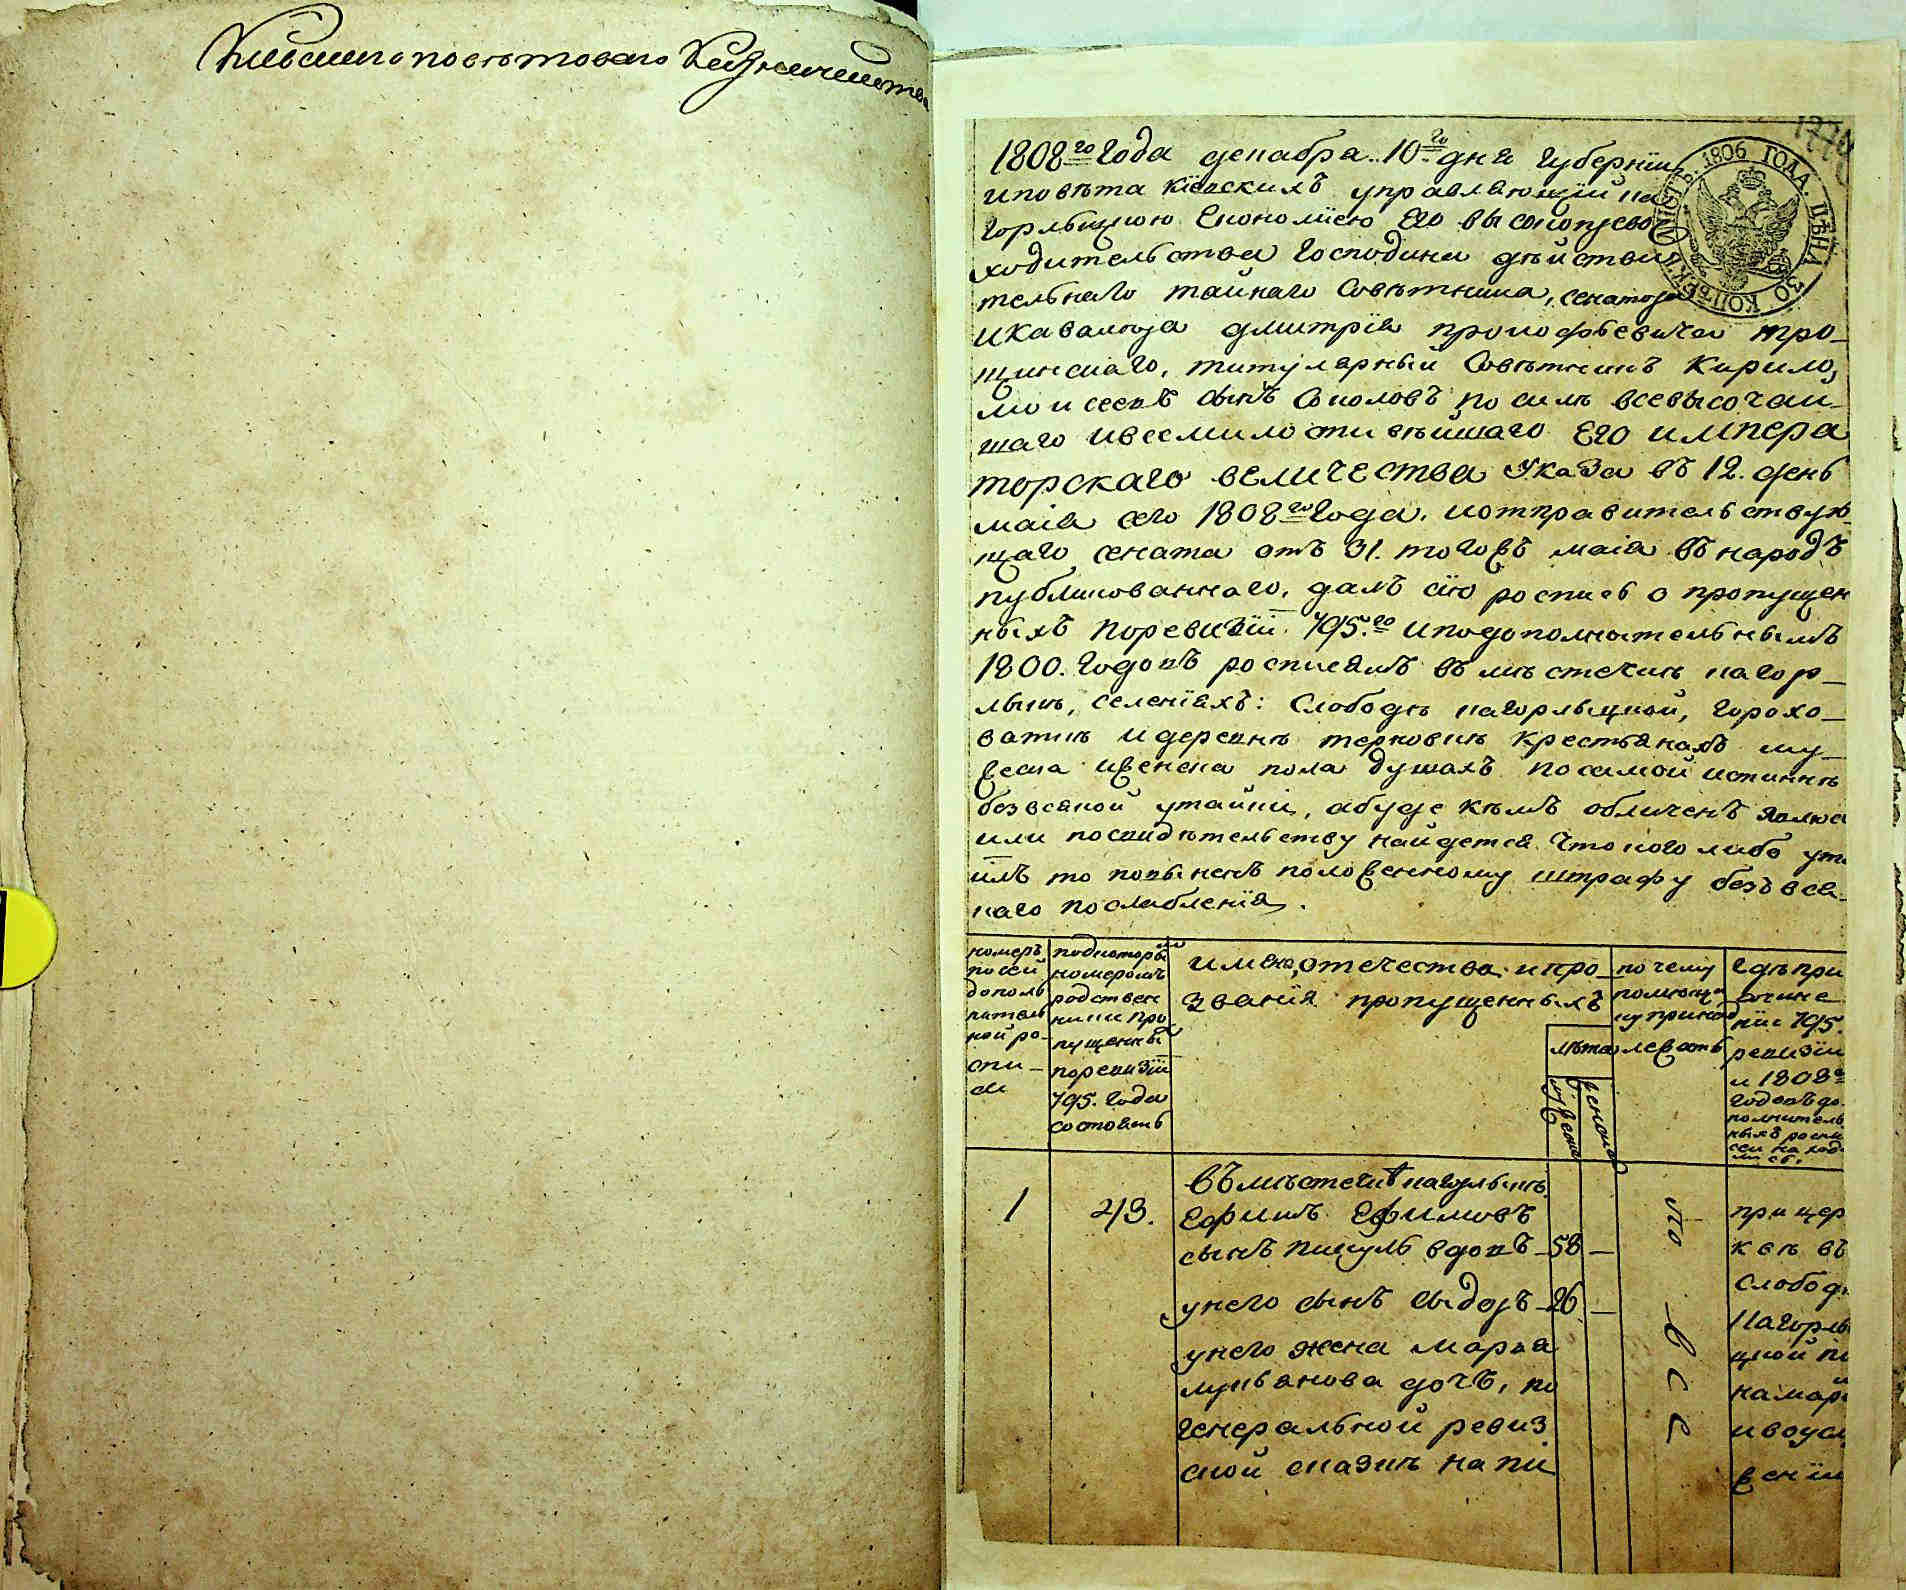 Киевского поветоваго Казначейства
1774
1806 ГОДА. ЦѢНА 30 КОПѢЕКЪ
1808го Года декабря 10го дня Губернии
и повѣта Киевскихъ управляющїй ка
горлыцкою Економїею Его высокопрево
ходительства Господина дѣйстви
тельнаго тайнаго Совѣтника, сенатора
и кавалера дмитрїя прокофьевича тро_
щинскаго, титулярный Совѣтникъ Кирило,
моисеевъ сынъ Соколовъ по силѣ всевысочай_
шаго и всемилостивѣйшаго Его импера
торскаго величества Указа въ 12. день
маїя сего 1808го Года. и отправительствую
щаго сената отъ 31. тогожъ маїя въ народъ
публикованнаго, далъ сїю роспись о пропущен
ныхъ поревизїи 795.го и подополнительнымъ
1800. Годовъ росписямъ въ мѣстечкѣ кагор_
лыкѣ, селенїяхъ: Слободѣ кагорлыцкой, горохо_
ваткѣ и деревнѣ терновкѣ крестьянахъ му_
жеска и женска пола душахъ по самой истиннѣ
безъ всякой утайки, а буде кѣмъ обличенъ явлюсь
или по свидѣтельству найдется что кого либо ута
илъ то повиненъ положенному штрафу безъ вся_
каго послабленїя.
номеръ
по сей
дополь
нитель
ной ро_
спи_
си
подкоторы
номеромъ
родствен
ники про
пущенны
поревизїи
795. Года
состоятъ
имена, отечества и про_
званїя пропущенныхъ
лѣта
мужеска
женска
почему
помѣщи
ку принад
лежатъ
Гдѣ при
чине
нїи 795.
ревизїи
и 1808го
годовъ до
полнитель
ныхъ роспи
сей наход
ись.
1
213.
Въ мѣстечкѣ кагорлыкѣ
Ефимъ Ефимовъ
сынъ пикуль вдовъ _ 58 _
у него сынъ сидоръ _ 26 _
у него жена марья
лукьянова дочь, по
генеральной ревиз
ской сказкѣ напи
по _ все
при цер
квѣ въ
слобод
Кагорлы
цкой по
на мар
и во усл
женїи